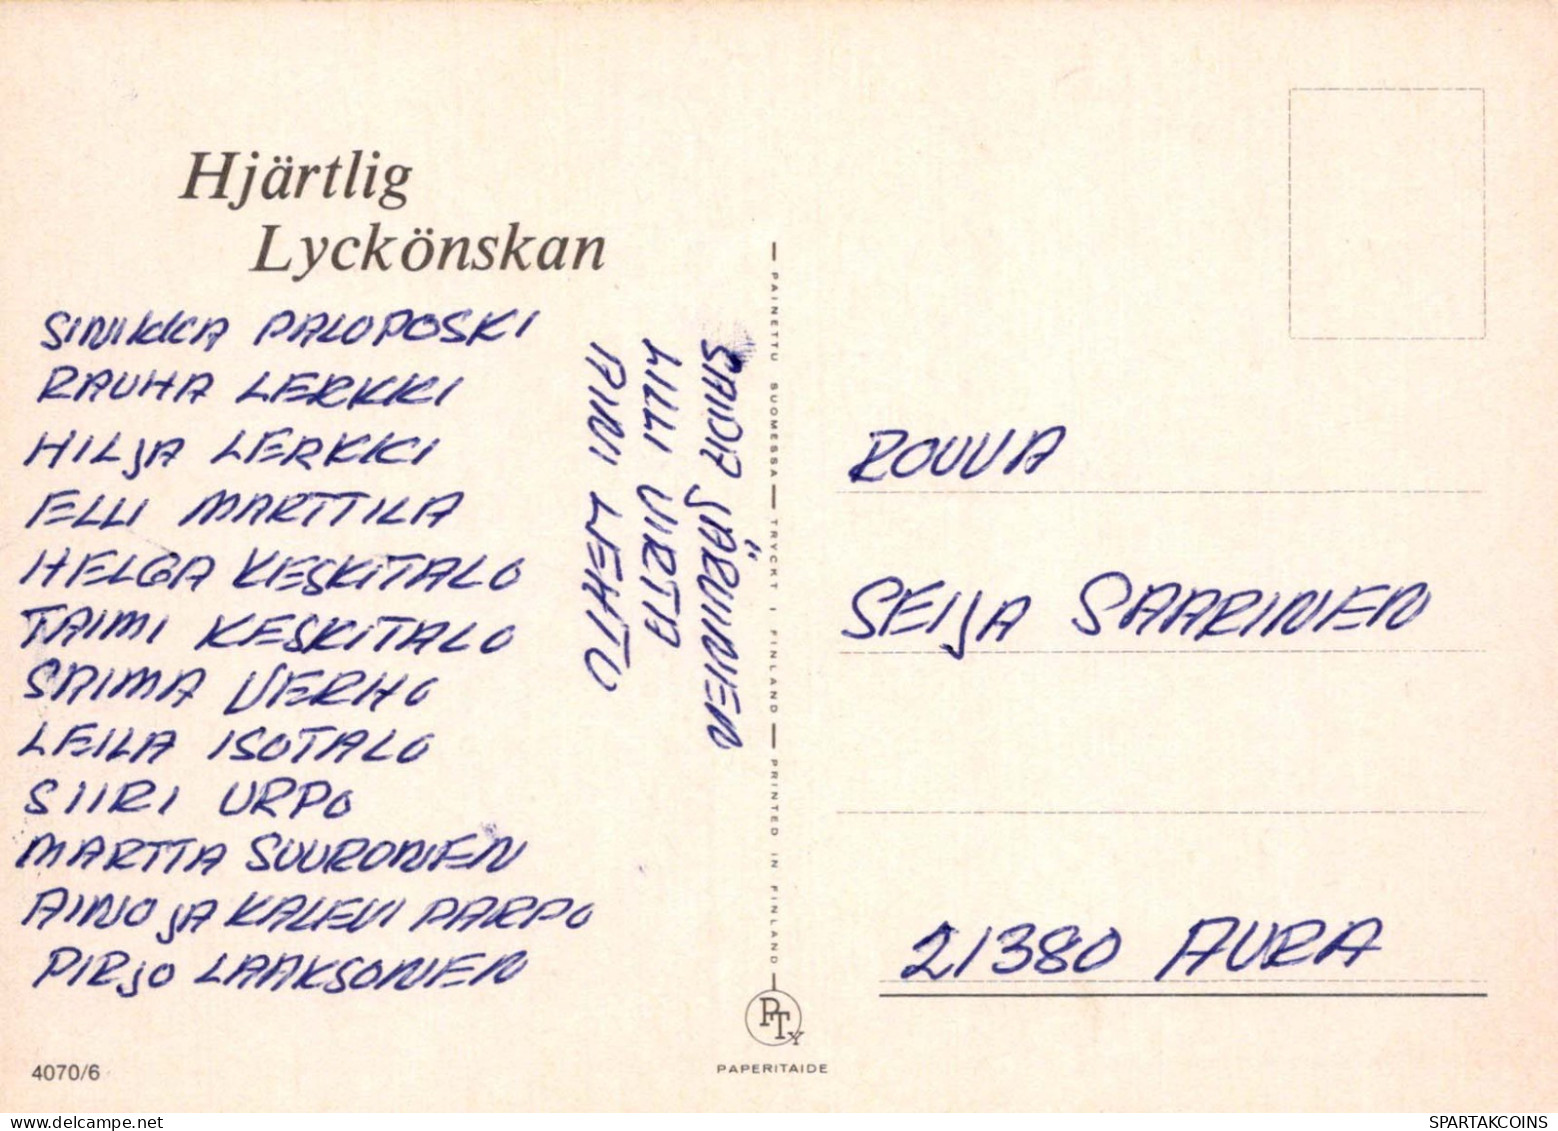 Hjärtlig
Lyckönskan
SINIKKA PALOPOSKI
RAUHA LERKKI
HILJA LERKKI
ELLI MARTTILA
HELGA KESKITALO
TAIMI KESKITALO
SAIMA VERHO
LEILA ISOTALO
SIIRI URPO
MARTTA SUURONEN
AINO JA KALEVI PARPO
PIRJO LAAKSONEN
AINI LEHTO
VIRTA
JÄRVINEN
PAINETTU SUOMESSA — TRYCKT I FINLAND — PRINTED IN FINLAND
ROUVA
SEIJA SAARINEN
21380 AURA
PTY
PAPERITAIDE
4070/6
SPARTAKCOINS